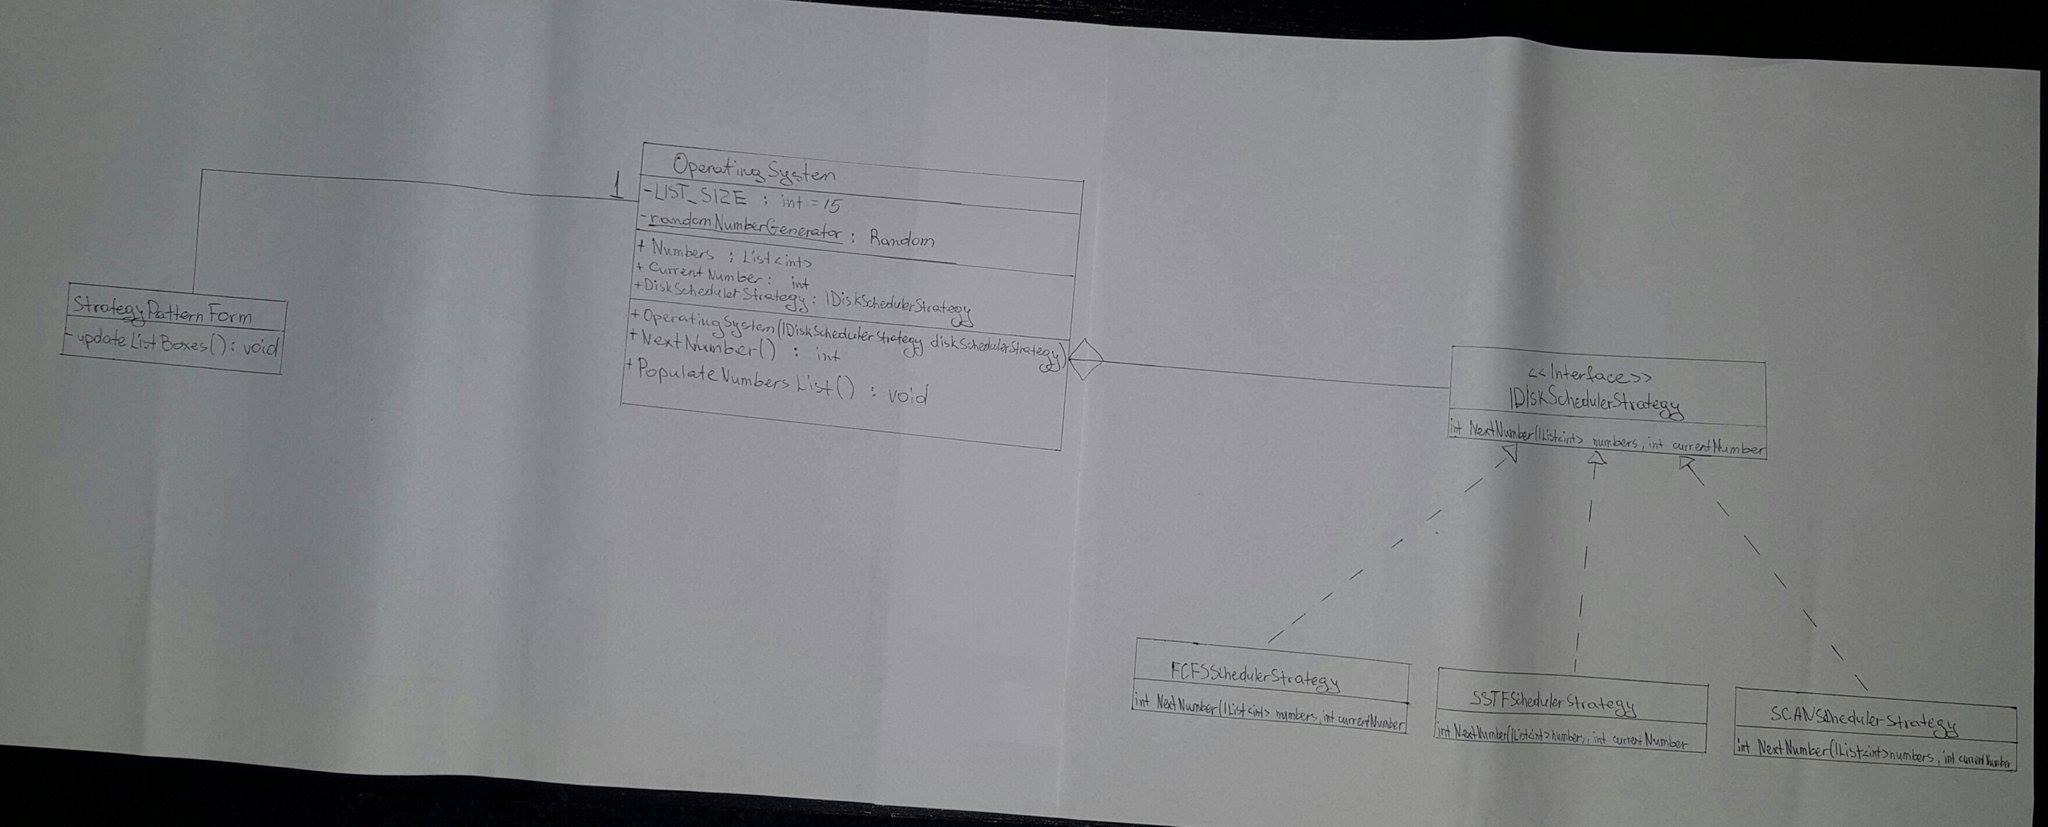 StrategyPatternForm
- updateListBoxes() : void
1
OperatingSystem
- LIST_SIZE : int = 15
- randomNumberGenerator : Random
+ Numbers : List<int>
+ CurrentNumber : int
+ DiskSchedulerStrategy : IDiskSchedulerStrategy
+ OperatingSystem(IDiskSchedulerStrategy diskSchedulerStrategy)
+ NextNumber() : int
+ PopulateNumbersList() : void
<<Interface>>
IDiskSchedulerStrategy
int NextNumber(IList<int> numbers, int currentNumber
FCFSSchedulerStrategy
int NextNumber(IList<int> numbers, int currentNumber
SSTFSchedulerStrategy
int NextNumber(IList<int> numbers, int currentNumber
SCANSchedulerStrategy
int NextNumber(IList<int> numbers, int currentNumber